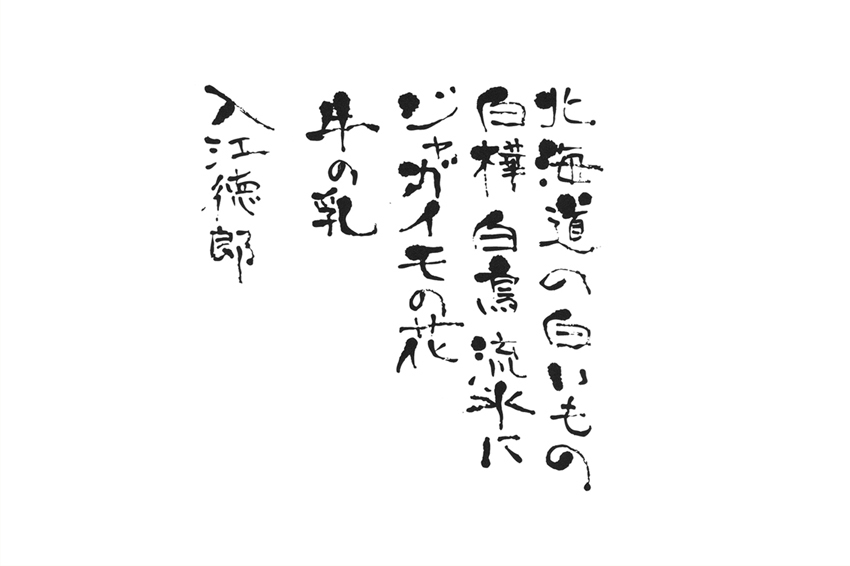 北海道の白いもの
白樺 白鳥 流氷に
ジャガイモの花
牛の乳
入江徳郎